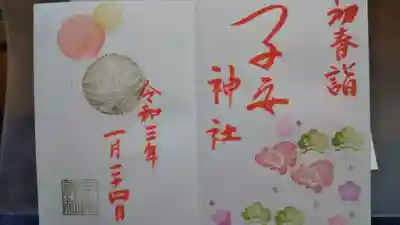 初春詣
子安
神社
令和三年
一月二十四日